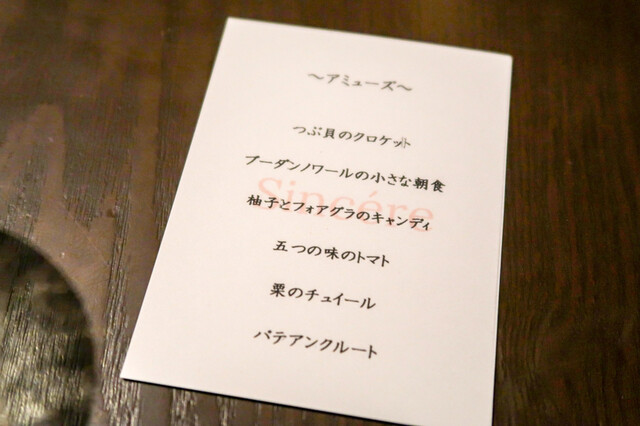 ～アミューズ～
つぶ貝のクロケット
ブーダンノワールの小さな朝食
Sincére
柚子とフォアグラのキャンディ
五つの味のトマト
栗のチュイール
パテアンクルート